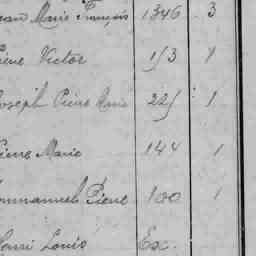 Jean Marie François 1346 3
Pierre Victor 153 1
Joseph Pierre Marie 225 1
Pierre Marie 144 1
Emmanuel Pierre 100 1
Henri Louis Ex.